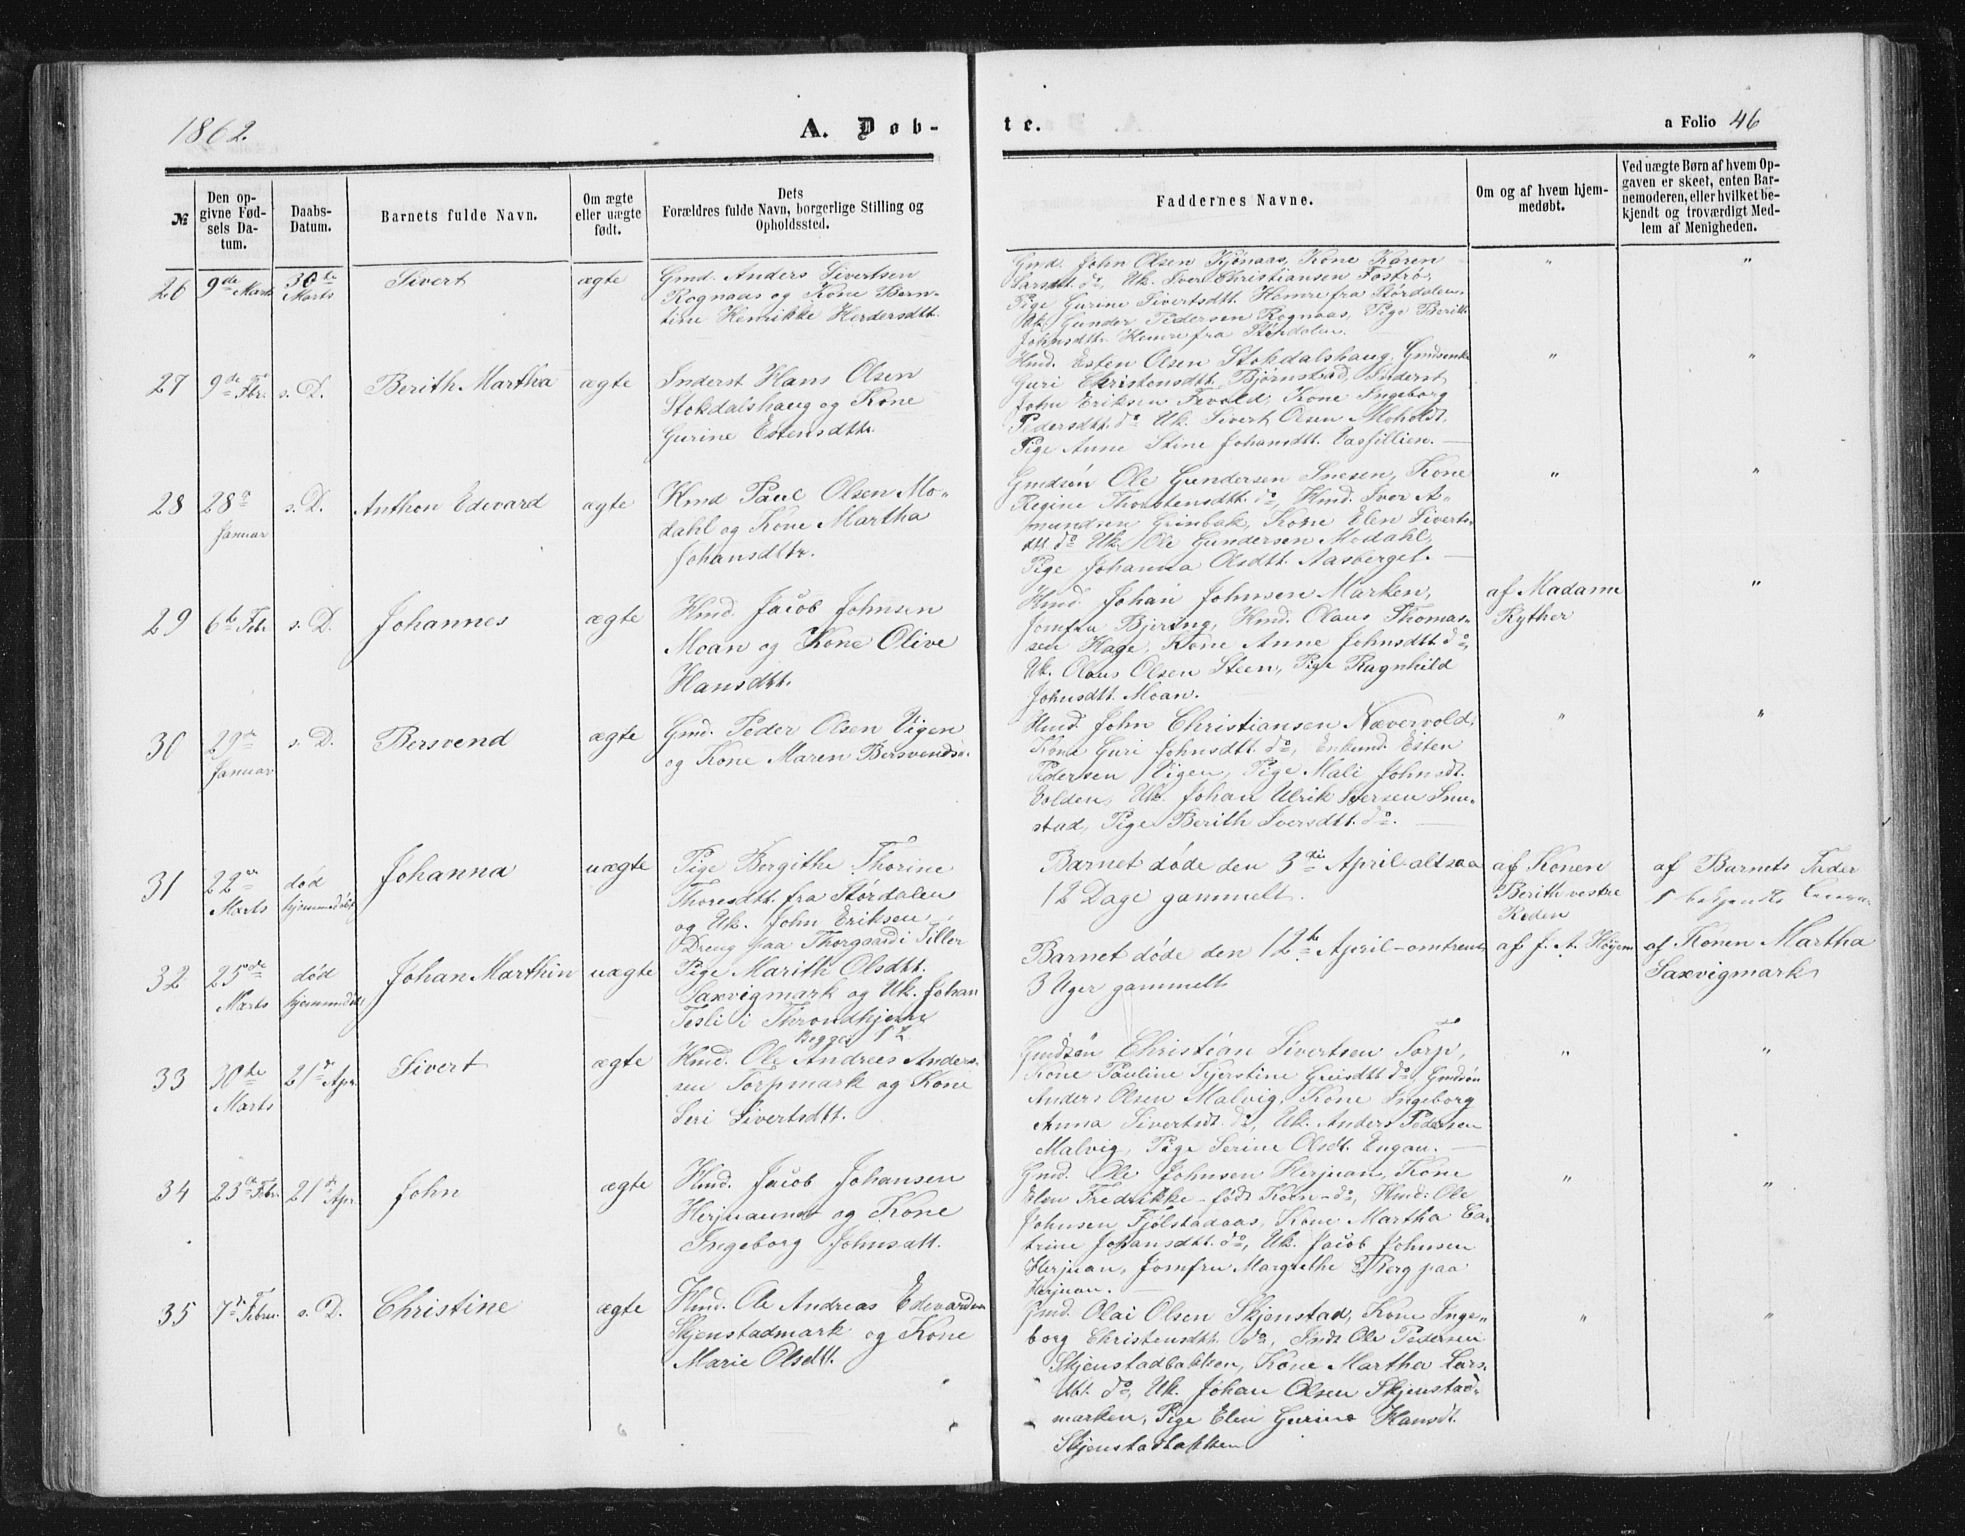 1862.
A. Døb-
te.
a Folio 46
№
Den op-
givne Fød-
sels Da-
tum.
Daabs-
Datum.
Barnets fulde Navn.
Om ægte
eller uægte
født.
Dets
Forældres fulde Navn, borgerlige Stilling og
Opholdssted.
Faddernes Navne.
Om og af hvem hjem-
medøbt.
Ved uægte Børn af hvem Op-
gaven er skeet, enten Bar-
nemoderen, eller hvilket be-
kjendt og troværdigt Med-
lem af Menigheden.
26
9de Marts
30te
Marts
Sivert
ægte
Gmd. Anders Sivertsen
Rognaas og Kone Bern-
tine Henrikke Herdersdtt.
Gmd. John Olsen Kjønaas, Kone Karen
Larsdtt. do, Uk. Iver Christiansen Fostrø,
Pige Gurine Sivertsdtt. Hemre fra Størdalen,
Uk. Gunder Pedersen Rognaas, Pige Berith
Johnsdtt. Hemre fra Størdalen.
"
"
27
9de Fbr.
s. D.
Berith Martha
ægte
Inderst Hans Olsen
Stokdalshaug og Kone
Gurine Estensdtt.
Hmd. Esten Olsen Stokdalshaug, Gmdsenke
Guri Christensdtt. Bjørnstad, Inderst
John Eriksen Tevold, Kone Ingeborg
Pedersdtt. do Uk. Sivert Olsen Moholdt,
Pige Anne Stine Johansdtt. Vasfillien.
"
"
28
28de
Januar
s. D.
Anthon Edevard
ægte
Hmd Paul Olsen Mo-
dahl og Kone Martha
Johansdtr.
Gmdsøn Ole Gundersen Snesen, Kone
Regine Thorstensdtt. do, Hmd. Iver A-
mundsen Grinbak, Kone Elen Siverts-
dtt do Uk. Ole Gundersen Modahl,
Pige Johanna Olsdtt. Aasberget.
"
"
29
6te Febr.
s. D.
Johannes
ægte
Hmd. Jacob Johnsen
Moan og Kone Olive
Hansdtt.
Hmd. Johan Johnsen Marken,
Jomfru Bjering, Hmd. Olaus Thomas-
sen Hage, Kone Anne Johnsdtt. do,
Uk. Olaus Olsen Steen, Pige Ragnhild
Johnsdtt. Moan.
af Madame
Ryther
"
30
29de
Januar
s. D.
Bersvend
ægte
Gmd. Peder Olsen Vigen
og Kone Maren Bersvendsd.
Hmd. John Christiansen Nævervold,
Kone Guri Johnsdtt. do, Enkemd. Esten
Pedersen Vigen, Pige Mali Johnsdt.
Volden, Uk. Johan Ulrik Iversen Snu-
stad, Pige Berith Iversdtt. do.
"
"
31
22de
Marts
død
hjemmedøbt
Johanna
uægte
Pige Bergithe Thorine
Thoresdtt. fra Størdalen
og Uk. John Eriksen,
Dreng paa Thorgaard i Tiller
Barnet døde den 3die April altsaa
12 Dage gammelt.
af Konen
Berith vestre
Reden
af Barnets Fader
32
25de
Marts
død
hjemmedøbt
Johan Marthin
uægte
Pige Marith Olsdtt.
Saxvigmark og Uk. Johan
Tesli i Throndhjem
Begges 1st
Barnet døde den 12te April – omtrent
3 Uger gammelt
af J. A. Høyem
af Konen Martha
Saxvigmark
33
30te
Marts
21de Apr.
Sivert
ægte
Hmd. Ole Andreas Anders-
sen Torpmark og Kone
Seri Sivertsdtt.
Gmdsøn Christian Sivertsen Torp,
Kone Pauline Kjerstine Greisdtt do, Gmdsøn
Anders Olsen Malvig, Kone Ingeborg
Anna Sivertsdt. do, Uk. Anders Pedersen
Malvig, Pige Serine Olsdt. Engan.
"
"
34
23de Febr.
21de Apr.
John
ægte
Hmd. Jacob Johansen
Herjuaunet og Kone
Ingeborg Johnsdtt.
Gmd. Ole Johnsen Herjuan, Kone
Elen Fredrikke – født Korn – do, Hmd. Ole
Johnsen Fjølstadaas, Kone Martha Ca-
trine Johansdtt. do, Uk. Jacob Johnsen
Herjuan, Jomfru Margrethe Berg paa
Herjuan.
"
"
35
7de Febru.
s. D.
Christine
ægte
Hmd. Ole Andreas Edevardsen
Skjenstadmark og Kone
Marie Olsdtt.
Gmd. Olai Olsen Skjenstad, Kone Inge-
borg Christensdtt. do, Inds Ole Pedersen
Skjenstadbakken, Kone Martha Lars-
dtt. do, Uk. Johan Olsen Skjenstad-
marken, Pige Elen Gurine Hansdt.
Skjenstadbakken
"
"